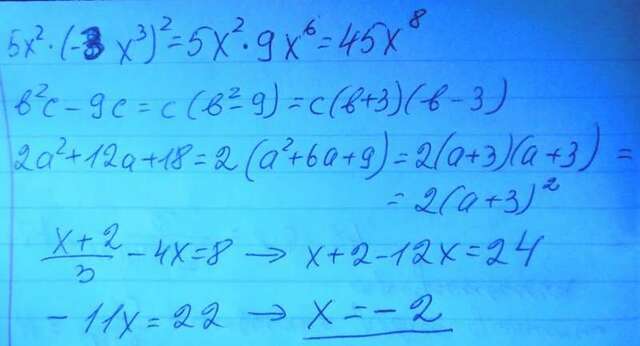 5x²·(-3x³)²=5x²·9x⁶=45x⁸
в²с-9с=с(в²-9)=с(в+3)(в-3)
2a²+12a+18=2(a²+6a+9)=2(a+3)(a+3)=
=2(a+3)²
(x+2)/3-4x=8→x+2-12x=24
-11x=22→x=-2